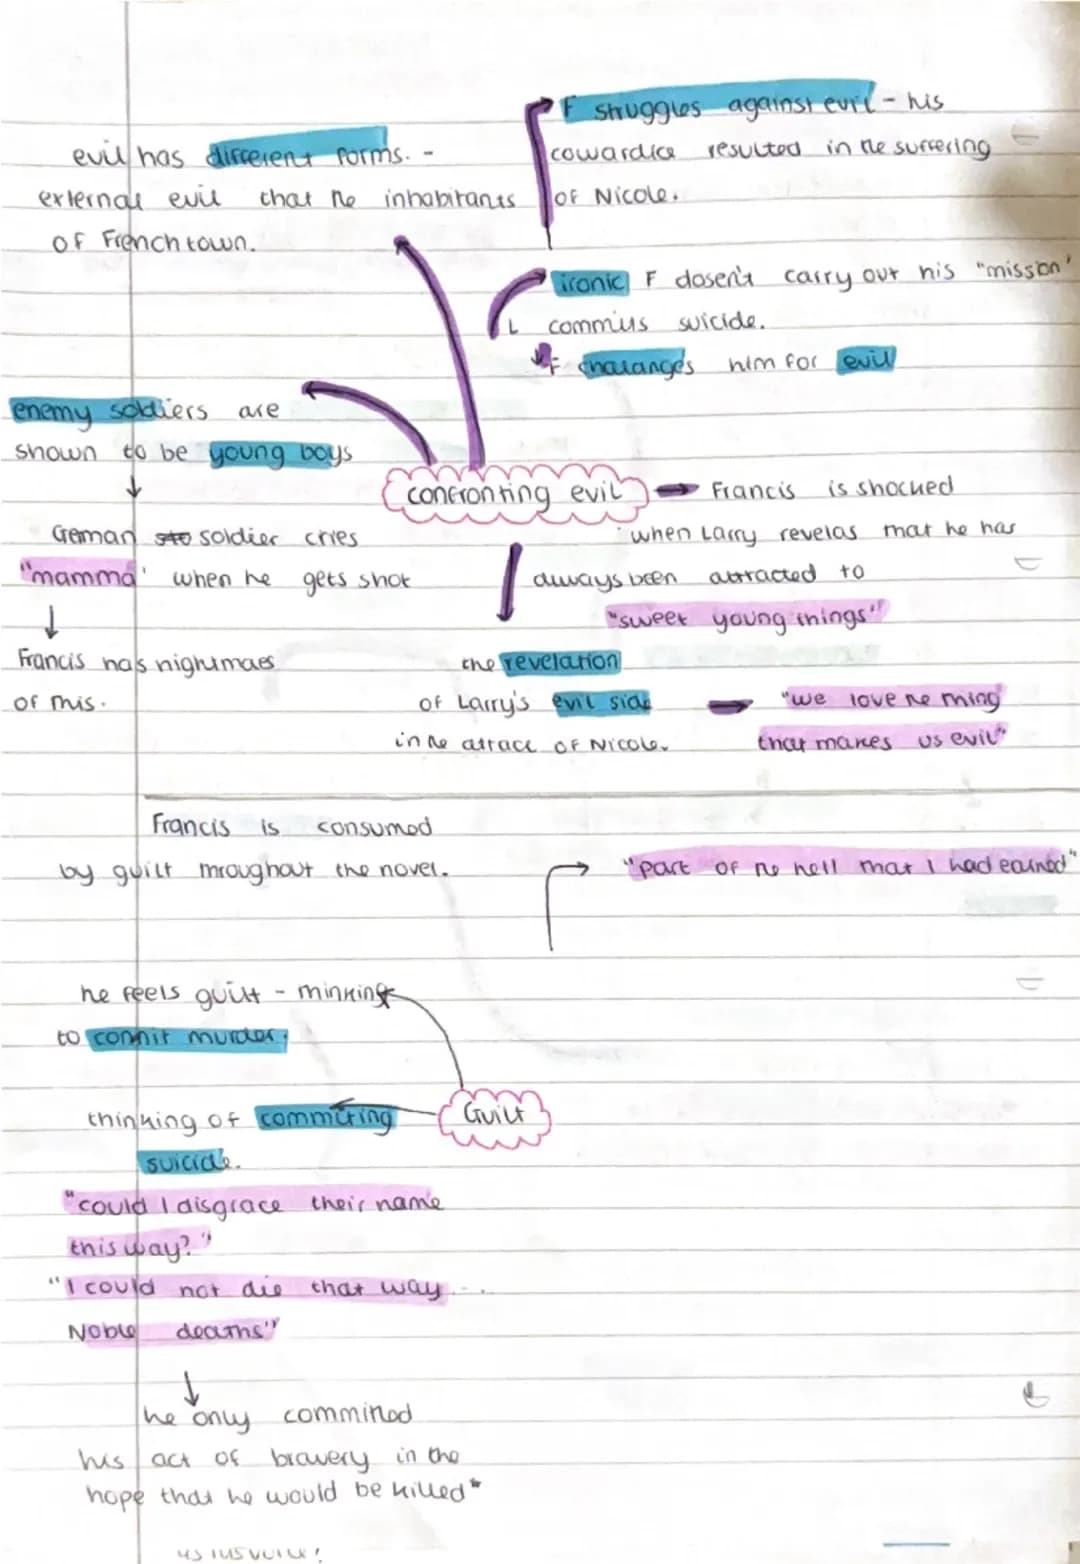 F struggles against evil - his
cowardice resulted in the suffering
of Nicole.
evil has different forms. -
external evil that the inhabitants
of Frenchtown.
ironic F dosen't carry out his "mission"
L commits suicide.
F chalanges him for evil
enemy soldiers are
shown to be young boys
German sto soldier cries
"mamma" when he gets shot
Francis has nightmaes
of this.
confronting evil
Francis is shocked
when Larry revelas that he has
always been attracted to
"sweet young things"
the revelation
of Larry's evil side
in the attack of Nicole.
"we love the thing
that makes us evil"
Francis is consumed
by guilt throughout the novel.
"part of the hell that I had earned"
he feels guilt - thinking
to commit murder.
Guilt
thinking of commiting
suicide.
"could I disgrace their name
this way?"
"I could not die that way ...
Noble deaths"
he only commited
his act of bravery in the
hope that he would be killed*